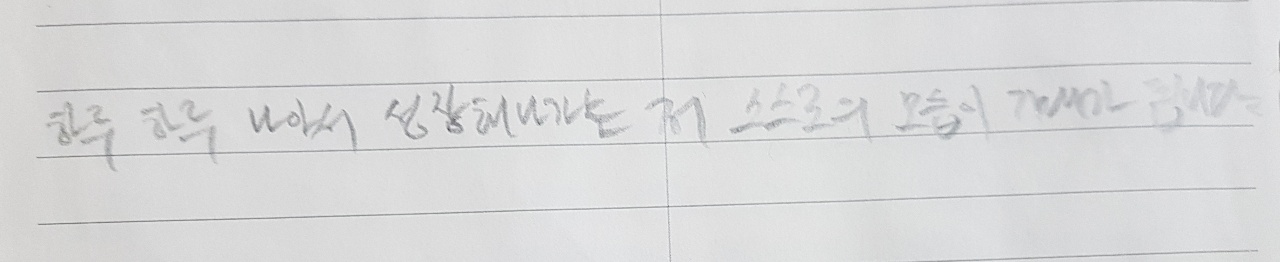 하루 하루 나아서 성장해나가는 저 스스로의 모습이 기대가 됩니다